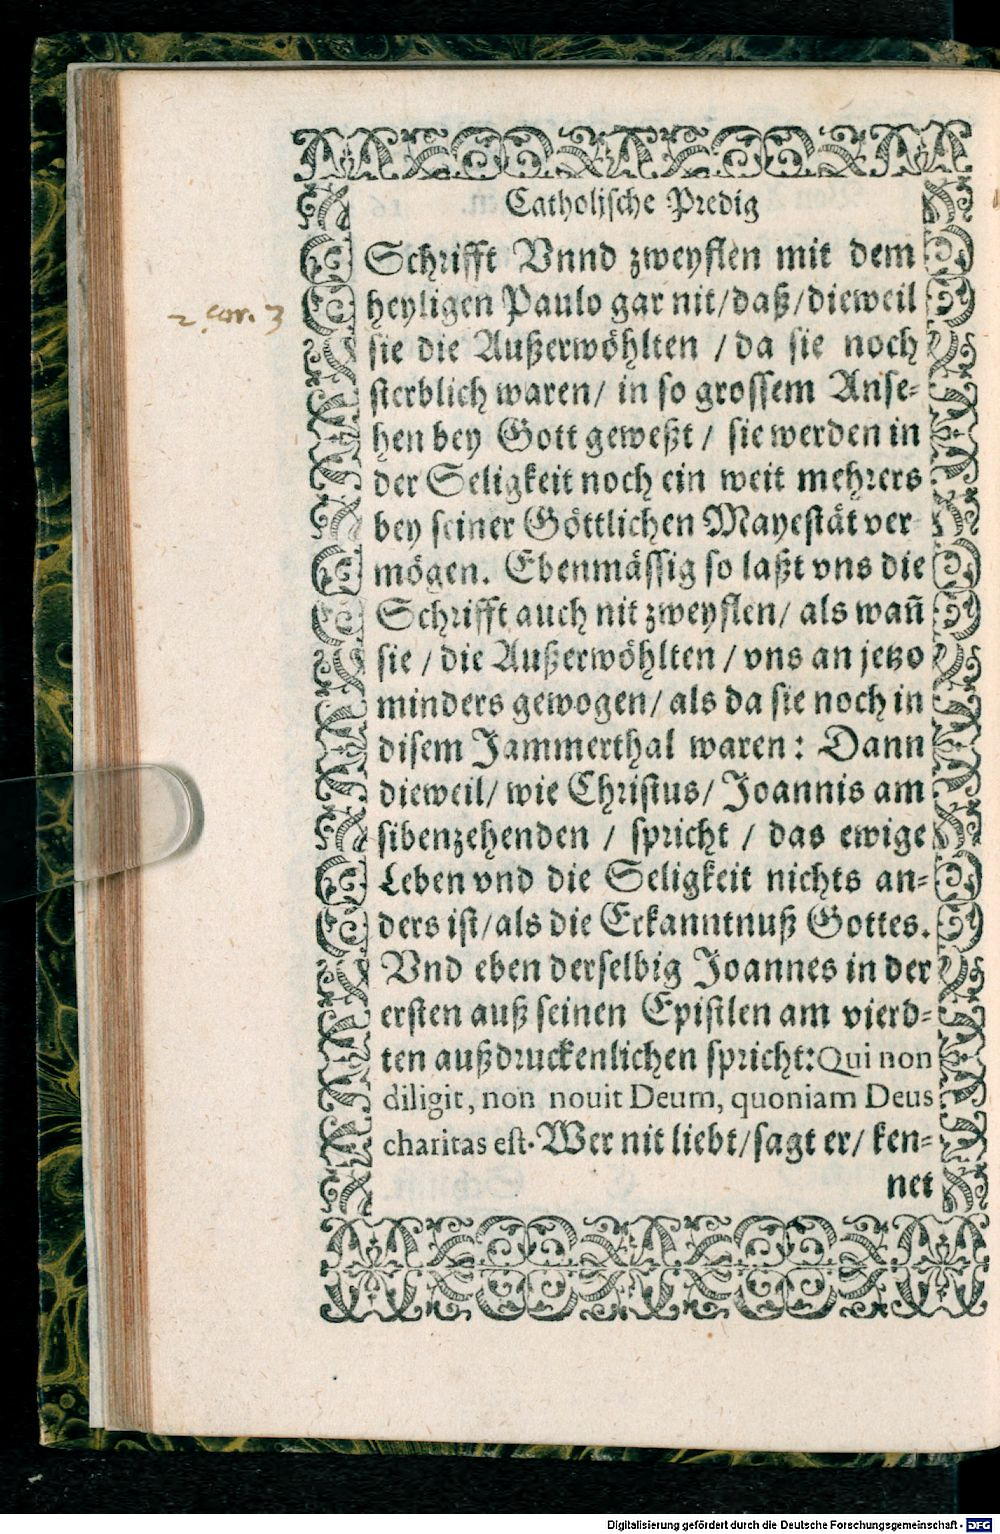 Catholische Predig
Schrifft Vnnd zweyflen mit dem
heyligen Paulo gar nit/daß/dieweil
2. Cor. 3
sie die Außerwöhlten /da sie noch
sterblich waren/ in so grossem Anse-
hen bey Gott geweßt / sie werden in
der Seligkeit noch ein weit mehrers
bey seiner Göttlichen Mayestät ver
mögen. Ebenmässig so laßt vns die
Schrifft auch nit zweyflen/ als wañ
sie / die Außerwöhlten / vns an jetzo
minders gewogen/ als da sie noch in
disem Jammerthal waren: Dann
dieweil/ wie Christus/ Joannis am
sibenzehenden / spricht / das ewige
Leben vnd die Seligkeit nichts an-
ders ist/als die Erkanntnuß Gottes.
Vnd eben derselbig Joannes in der
ersten auß seinen Epistlen am vierd-
ten außdruckenlichen spricht: Qui non
diligit, non nouit Deum, quoniam Deus
charitas est. Wer nit liebt/sagt er/ ken-
net
Digitalisierung gefördert durch die Deutsche Forschungsgemeinschaft - DFG